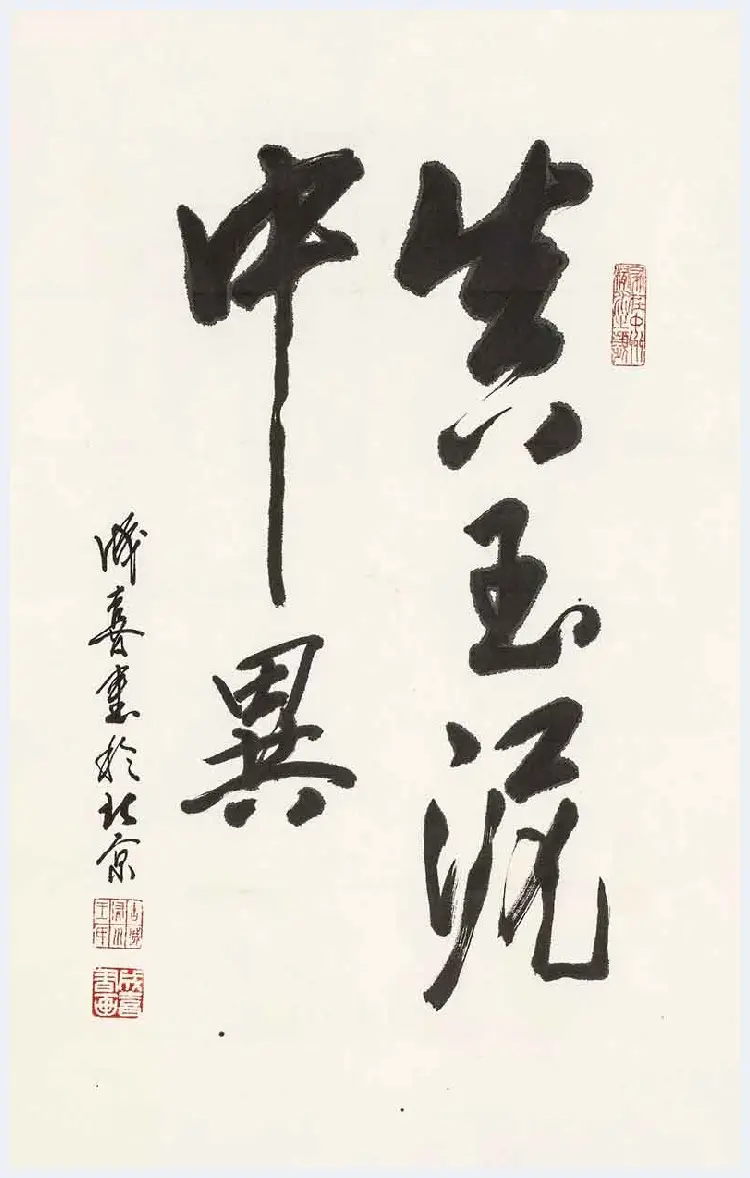 真玉泥
中異
成喜書於北京
成喜
書画